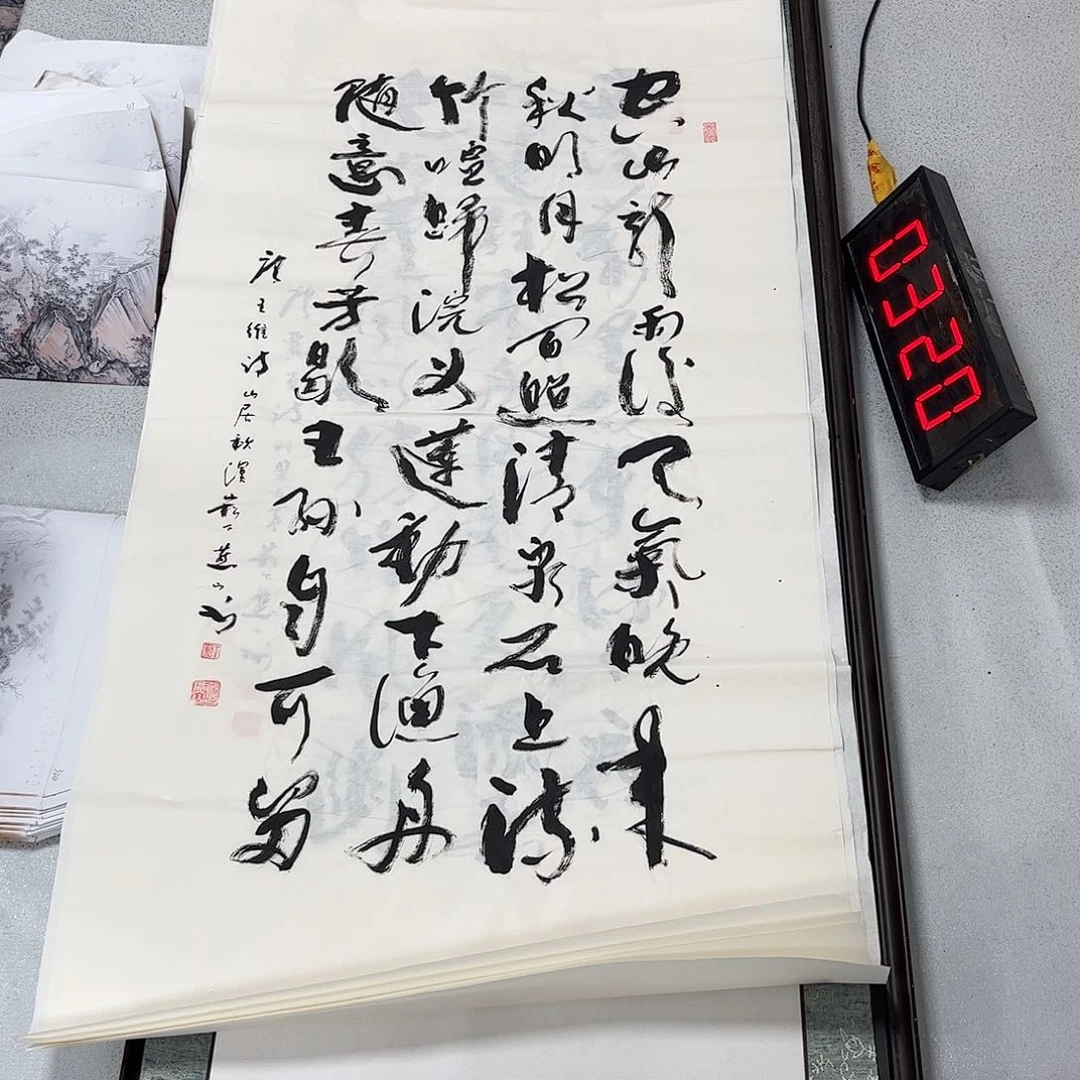 空山新雨後天氣晚来
秋明月松间照清泉石上流
竹喧歸浣女蓮動下漁舟
随意春芳歇王孙自可留
唐王維诗山居秋溟 燕山
0320